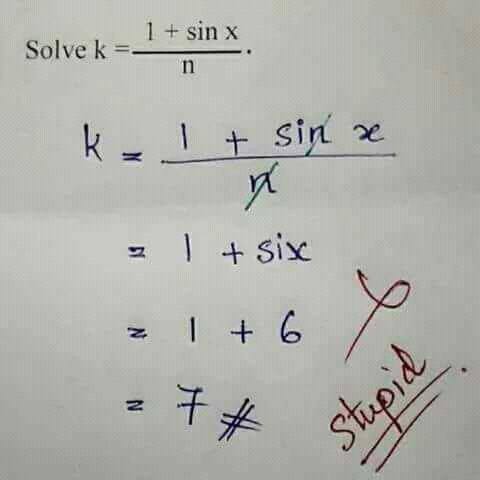 Solve k = (1 + sin x)/n .
k = (1 + sin x)/n
= 1 + six
= 1 + 6
= 7 #
stupid.